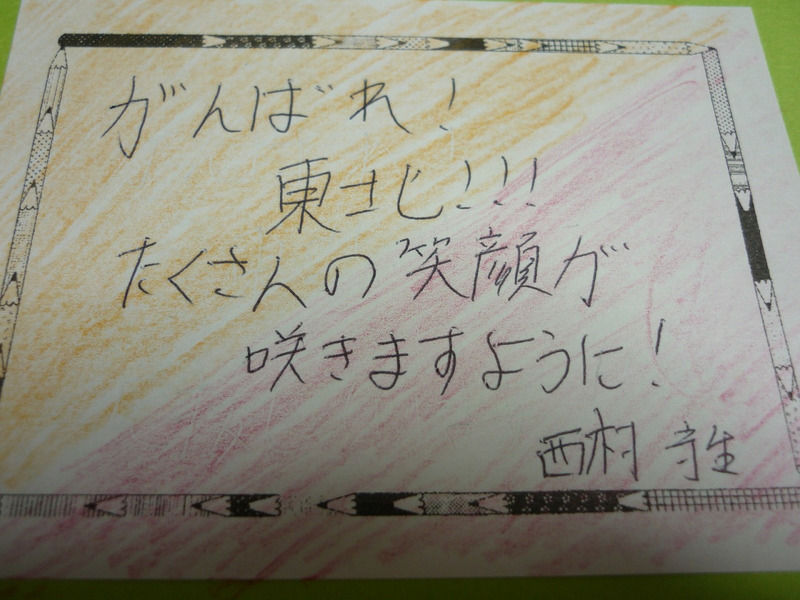 がんばれ！
東まじ!!!
たくさんの笑顔が
咲きますように！
西村